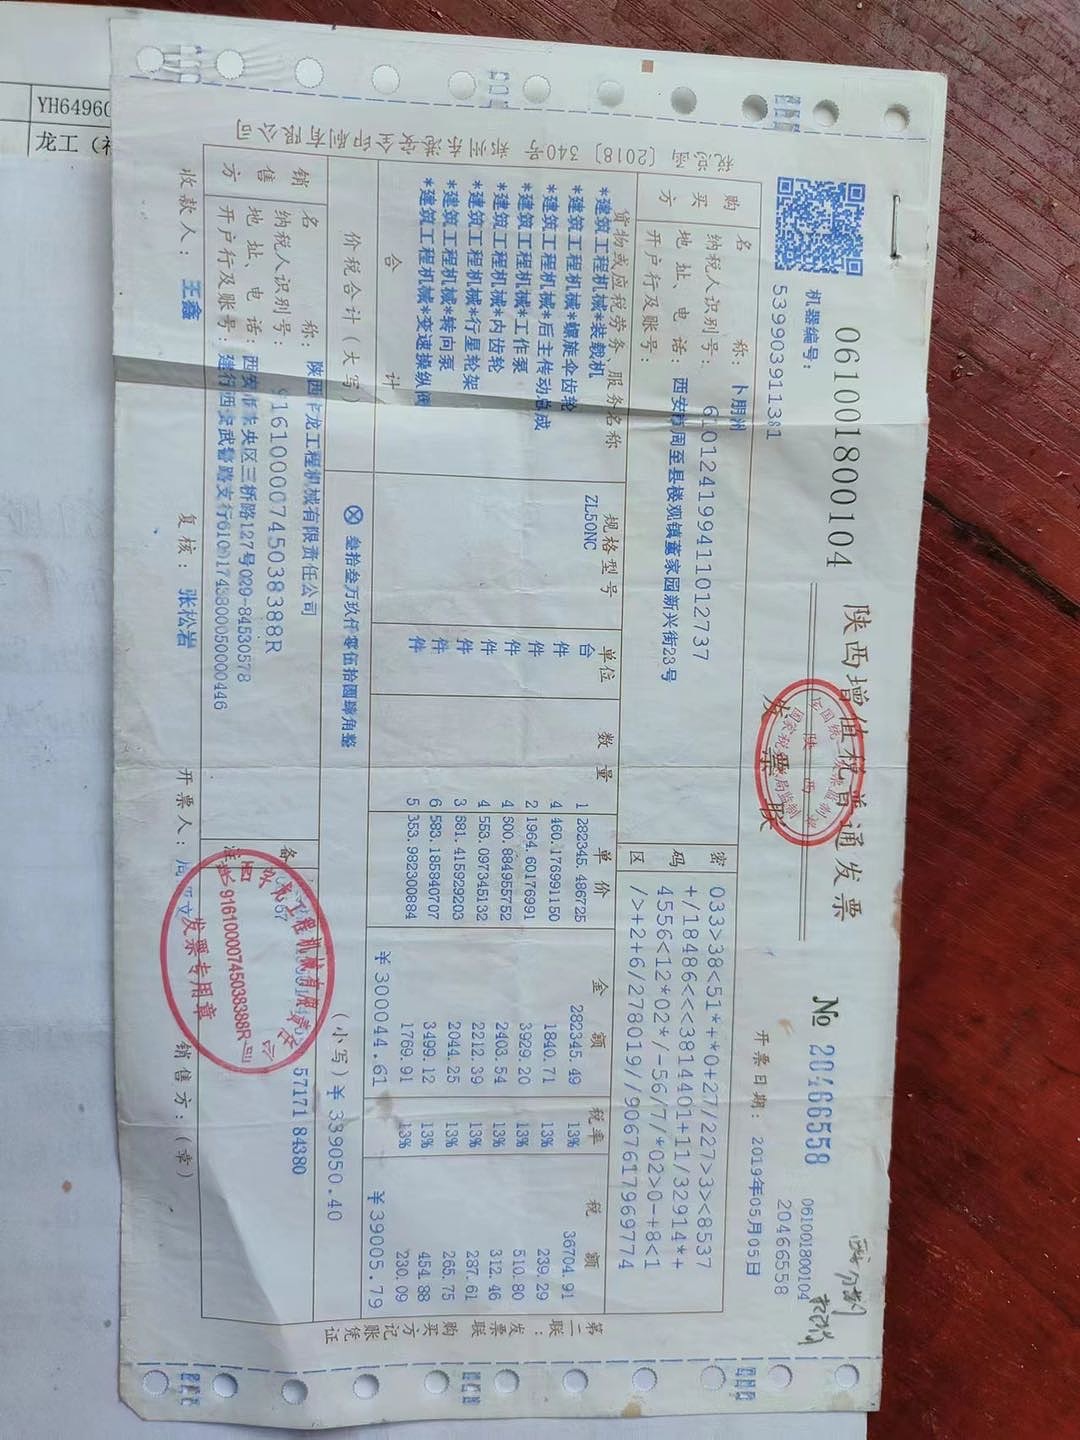 YH6496
龙工（
税总函〔2018〕340号
机器编号：
539903911381
061001800104
陕西增值税普通发票
发票联
全国统一发票监制章
陕西
№ 20466558
061001800104
20466558
开票日期： 2019年05月05日
购买方
名 称： 卜朋洲
纳税人识别号： 610124199411012737
地址、电话： 西安市周至县楼观镇董家园新兴街23号
开户行及账号：
密码区
033>38<51*+*0+27/227>3><8537
+/18486<<<3814401+11/32914*+
4556<12*02*/-56/7/*02>0-+8<1
/>+2+6/278019//9067617969774
货物或应税劳务、服务名称 规格型号 单位 数量 单价 金额 税率 税额
*建筑工程机械*装载机 ZL50NC 台 1 282345.486725 282345.49 13% 36704.91
*建筑工程机械*螺旋伞齿轮 件 4 460.176991150 1840.71 13% 239.29
*建筑工程机械*后主传动总成 件 2 1964.60176991 3929.20 13% 510.80
*建筑工程机械*工作泵 件 4 600.884955752 2403.54 13% 312.46
*建筑工程机械*内齿轮 件 4 553.097345132 2212.39 13% 287.61
*建筑工程机械*行星轮架 件 3 681.415929203 2044.25 13% 265.75
*建筑工程机械*转向泵 件 6 583.185840707 3499.12 13% 454.88
*建筑工程机械*变速操纵阀 件 5 353.982300884 1769.91 13% 230.09
合 计 ￥300044.61 ￥39005.79
价税合计（大写） ⊗叁拾叁万玖仟零伍拾圆肆角整 （小写）￥339050.40
销售方
名 称： 陕西 龙工程机械有限责任公司
纳税人识别号： 91610000745038388R
地址、电话： 西安市未央区三桥路127号029-84530578
开户行及账号： 建行西安武警路支行61001743800050000446
备注
57171 84380
91610000745038388R
发票专用章
收款人： 王鑫 复核： 张松岩 开票人： 销售方：（章）
第二联：发票联 购买方记账凭证